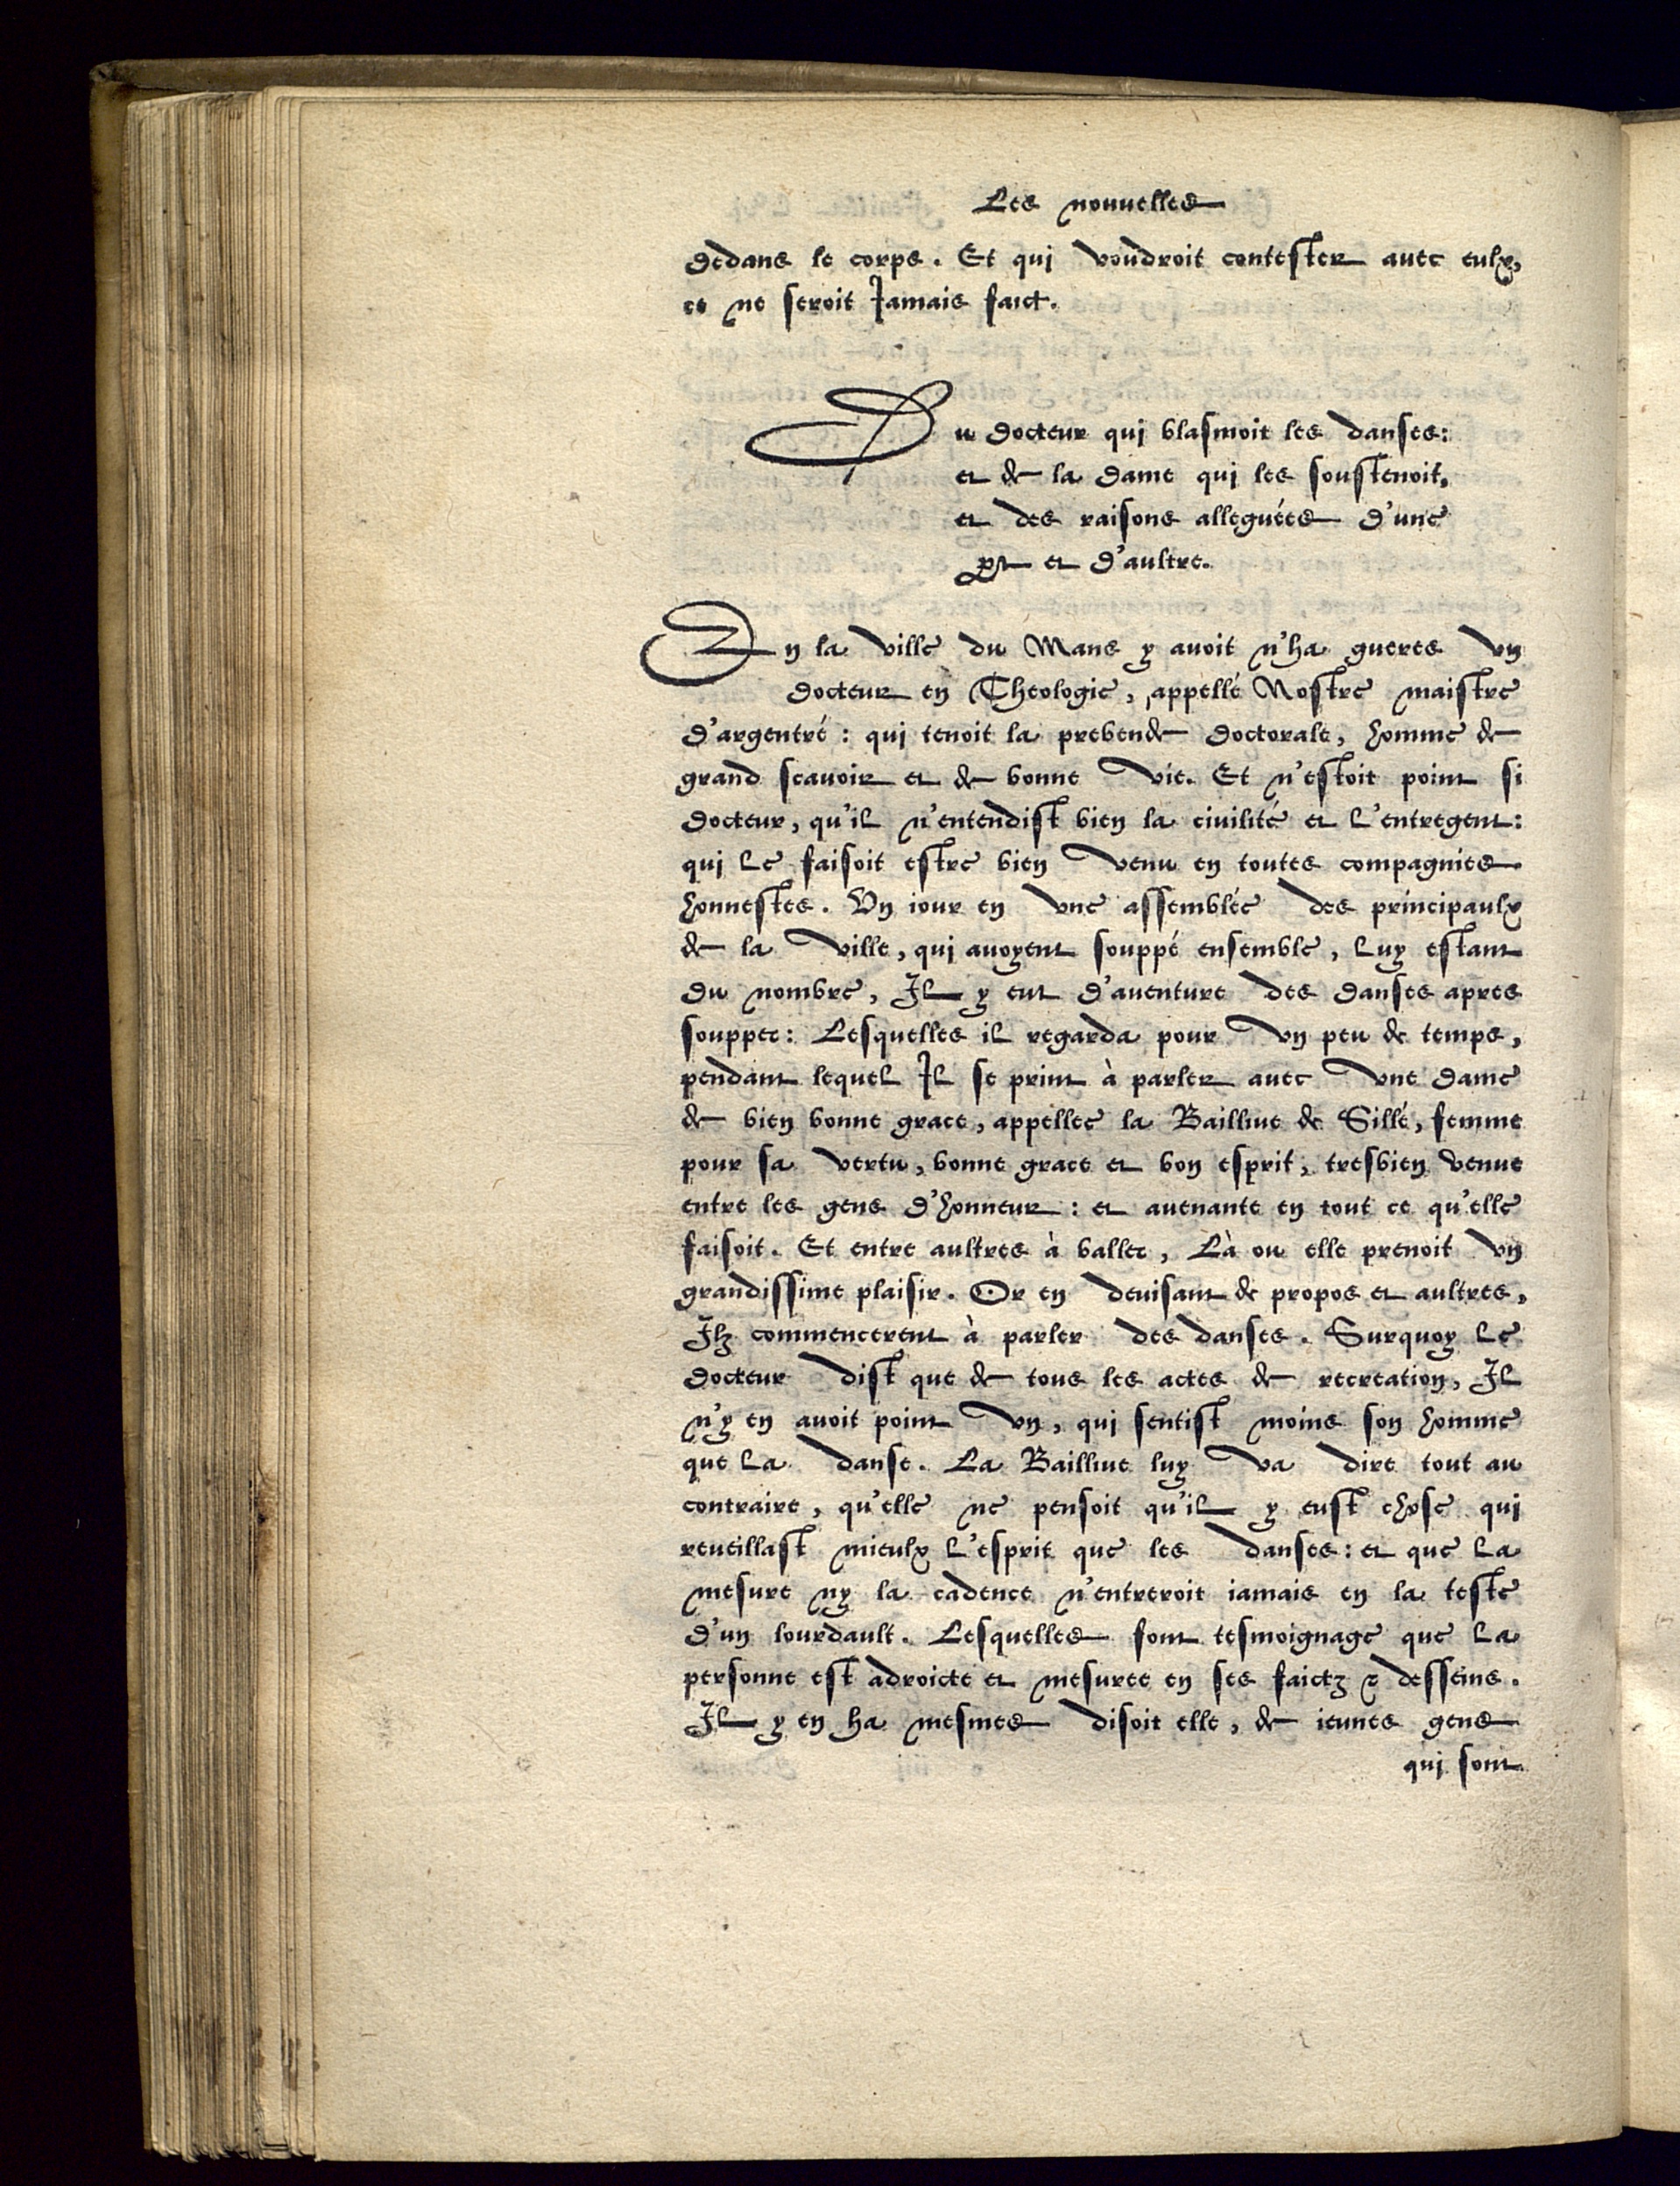 Les nouuelles
dedans le corps. Et qui voudroit contester auec eulx,
ce ne seroit Jamais faict.
Du docteur qui blasmoit les danses:
et de la dame qui les soustenoit,
et des raisons alleguées d'une
part et d'aultre.
En la ville du Mans y auoit n'ha gueres vn
docteur en Theologie, appellé Nostre maistre
d'argentré: qui tenoit la prebende doctorale, homme de
grand scauoir et de bonne vie. Et n'estoit point si
docteur, qu'il n'entendist bien la ciuilité et l'entregent:
qui le faisoit estre bien venu en toutes compagnies
honnestes. Vn iour en vne assemblée des principaulx
de la ville, qui auoyent souppé ensemble, luy estant
du nombre, Il y eut d'auenture des danses apres
soupper: Lesquelles il regarda pour vn peu de temps,
pendant lequel Il se print à parler auec vne dame
de bien bonne grace, appellee la Bailliue de Sillé, femme
pour sa vertu, bonne grace et bon esprit, tresbien venue
entre les gens d'honneur: et auenante en tout ce qu'elle
faisoit. Et entre aultres à baller, Là ou elle prenoit vn
grandissime plaisir. Or en deuisant de propos et aultres,
Ilz commencerent à parler des danses. Surquoy le
docteur dist que de tous les actes de recreation, Il
n'y en auoit point vn, qui sentist moins son homme
que la danse. La Bailliue luy va dire tout au
contraire, qu'elle ne pensoit qu'il y eust chose qui
reueillast mieulx l'esprit que les danses: et que la
mesure ny la cadence n'entreroit iamais en la teste
d'un lourdault. Lesquelles font tesmoignage que la
personne est adroicte et mesuree en ses faictz & desseins.
Il y en ha mesmes disoit elle, de ieunes gens
qui sont